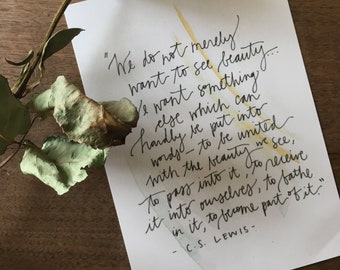 "We do not merely
want to see beauty...
We want something
else which can
hardly be put into
words - to be united
with the beauty we see,
to pass into it, to receive
it into ourselves, to bathe
in it, to become part of it."
- C.S. LEWIS -